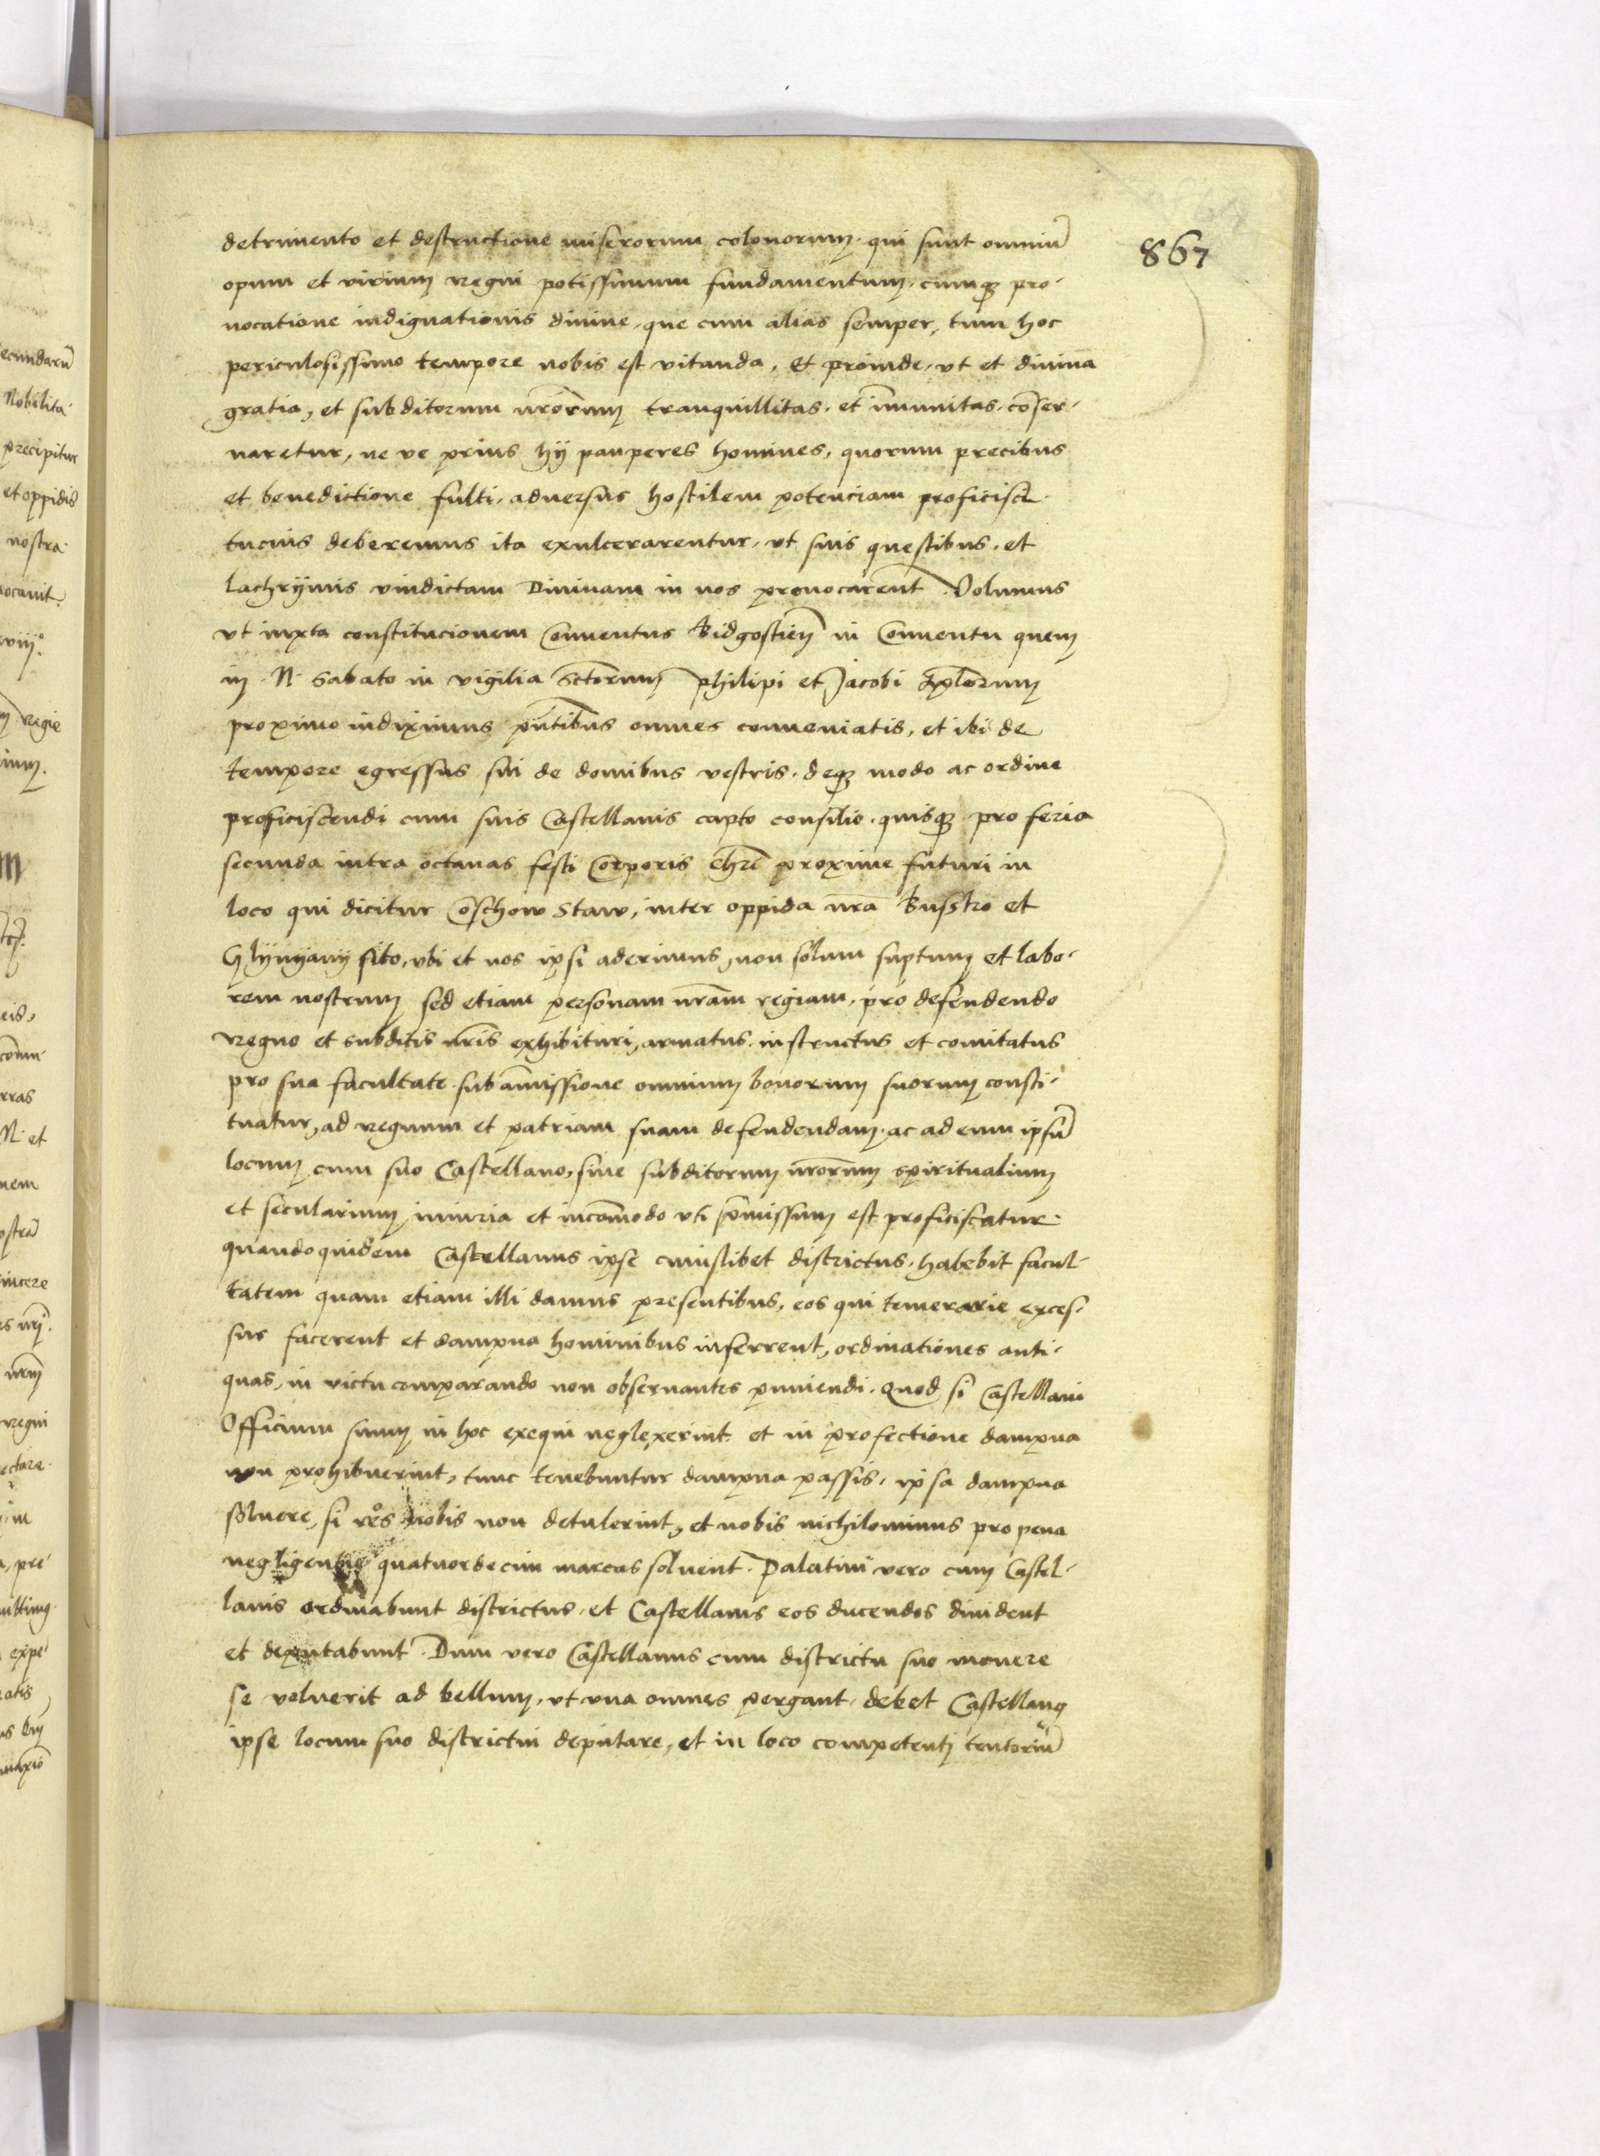 detrimento et destructione miserorum colonorum. qui sunt omniū
opum et virium regni potissimum fundamentum. cumq₃ pro-
uocatione indignationis diuine, que cum alias semper, tum hoc
periculosissimo tempore nobis est vitanda, Et proinde, vt et diuina
gratia, et subditorum nr̄orum tranquillitas. et īmunitas. cōser-
uaretur, ne ve prius hÿ pauperes homines, quorum precibus
et benedictione fulti, aduersus hostilem potenciam proficisci
tucius deberemus ita exulcerarentur, vt suis questibus, et
lachrÿmis vindictam Diuinam in nos prouocarent. Volumus
vt iuxta constitucionem Conuentus Bidgostieñ in Conuentu quem
in N. Sabato in vigilia Sctōrum Philipi et Jacobi Apl̄orum
proximo indiximus pn̄tibus omnes conueniatis, et ibi de
tempore egressus sui de domibus vestris. deq₃ modo ac ordine
proficiscendi cum suis Castellanis capto consilio. quisq₃ pro feria
secunda intra octauas festi Corporis Chrī proxime futuri in
loco qui dicitur Coschow Staw, inter oppida nrā Bussko et
Glÿnÿanÿ sito, vbi et nos ipsi aderimus, non solum sūptum et labo-
rem nostrum sed etiam personam nrām regiam, pro defendendo
regno et subditis nrīs exhibituri, armatus. instructus et comitatus
pro sua facultate. sub āmissione omnium bonorum suorum consti-
tuatur, ad regnum et patriam suam defendendam. ac ad eum ipsū
locum cum suo Castellano, siue subditorum nrōrum spiritualium
et secularium iniuria et incōmodo vti p̄missum est proficiscatur.
quandoquidem Castellanus ipse cuiuslibet districtus. habebit facul-
tatem quam etiam illi damus presentibus, eos qui temerarie exces-
sus facerent et dampna hominibus inferrent, ordinationes anti-
quas, in victu comparando non obseruantes puniendi. Quod si Castellani
Officium suum in hoc exequi neglexerint et in profectione dampna
non prohibuerint, tunc tenebuntur dampna passis, ipsa dampna
soluere, si reos nobis non detulerint, et nobis nichilominus pro pena
negligentie quatuordecim marcas soluent. Palatini vero cum Castel-
lanis ordinabunt districtus, et Castellanis eos ducendos diuident
et deputabunt. Dum vero Castellanus cum districtu suo mouere
se voluerit ad bellum, vt vna omnes pergant. debet Castellanꝰ
ipse locum suo districtui deputare, et in loco competenti tentoriū
867